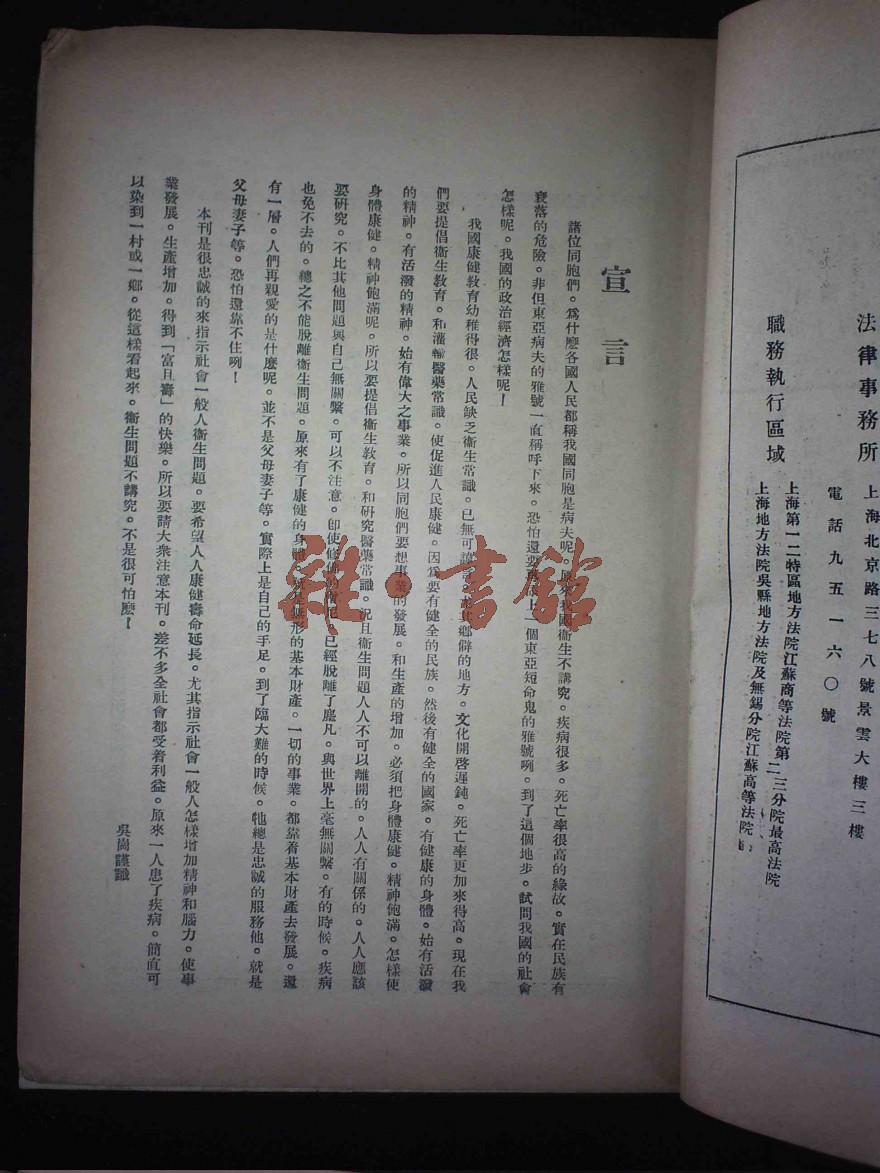 法律事務所
上海北京路三七八號景雲大樓三樓
電話九五一六〇號
職務執行區域
上海第一二特區地方法院江蘇高等法院第二三分院最高法院
上海地方法院吳縣地方法院及無錫分院江蘇高等法院
宣言
諸位同胞們。爲什麼各國人民都稱我國同胞是病夫呢。原來我國衞生不講究。疾病很多。死亡率很高的緣故。實在民族有
衰落的危險。非但東亞病夫的雅號一直稱呼下來。恐怕還要上一個東亞短命鬼的雅號咧。到了這個地步。試問我國的社會
怎樣呢。我國的政治經濟怎樣呢！
我國康健教育幼稚得很。人民缺乏衞生常識。已無可諱言。尤其鄉僻的地方。文化開啓遲鈍。死亡率更加來得高。現在我
們要提倡衞生教育。和灌輸醫藥常識。使促進人民康健。因爲要有健全的民族。然後有健全的國家。有健康的身體。始有活潑
的精神。有活潑的精神。始有偉大之事業。所以同胞們要想事業的發展。和生產的增加。必須把身體康健。精神飽滿。怎樣使
身體康健。精神飽滿呢。所以要提倡衞生教育。和研究醫藥常識。況且衞生問題人人不可以離開的。人人有關係的。人人應該
要研究。不比其他問題與自己無關繫。可以不注意。卽使修佛的僧尼。已經脫離了塵凡。與世界上毫無關繫。有的時候。疾病
也免不去的。總之不能脫離衞生問題。原來有了康健的身體。就是無形的基本財產。一切的事業。都靠着基本財產去發展。還
有一層。人們再親愛的是什麼呢。並不是父母妻子等。實際上是自己的手足。到了臨大難的時候。牠總是忠誠的服務他。就是
父母妻子等。恐怕還靠不住咧！
本刊是很忠誠的來指示社會一般人衞生問題。要希望人人康健壽命延長。尤其指示社會一般人怎樣增加精神和腦力。使事
業發展。生產增加。得到「富且壽」的快樂。所以要請大衆注意本刊。差不多全社會都受着利益。原來一人患了疾病。簡直可
以染到一村或一鄉。從這樣看起來。衞生問題不講究。不是很可怕麽！
吳崗謹識
雜·書館